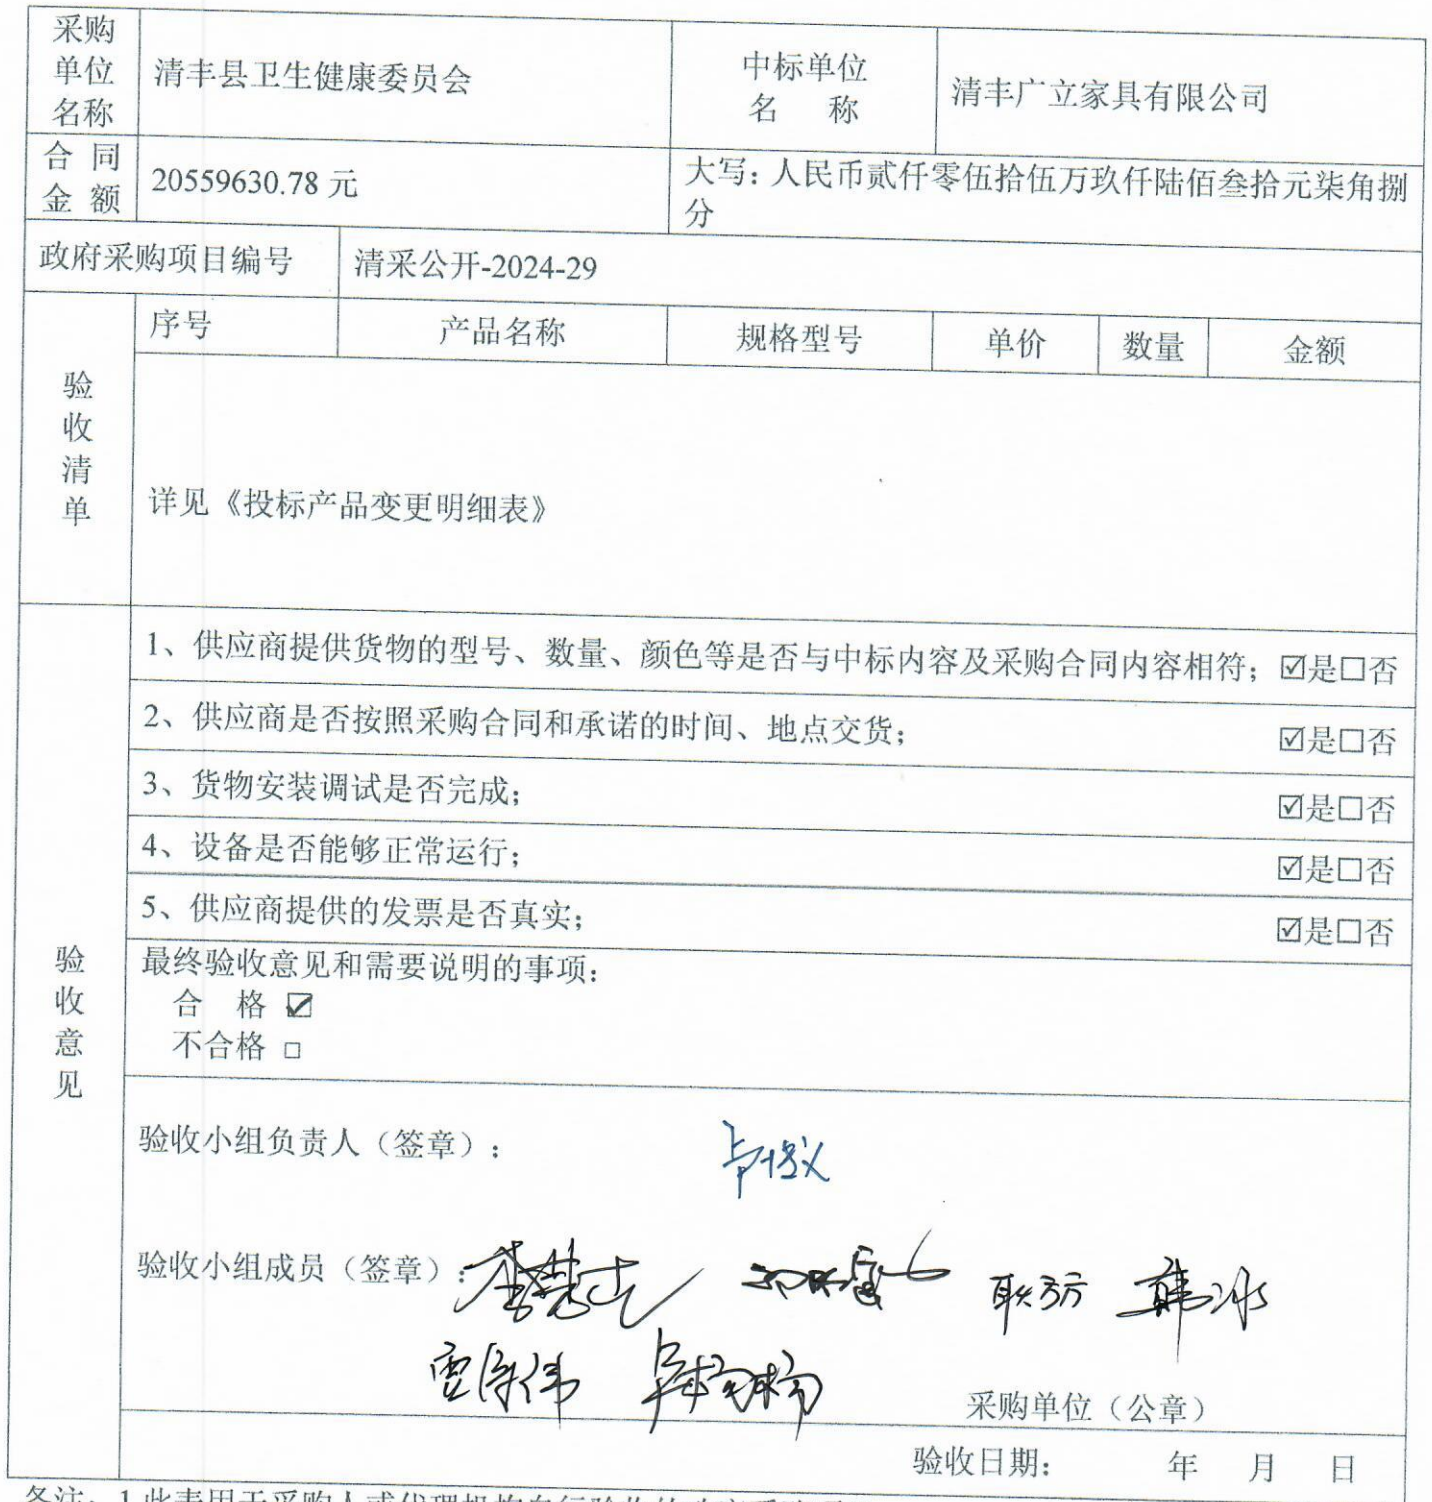 采购
单位
名称
清丰县卫生健康委员会
中标单位
名 称
清丰广立家具有限公司
合 同
金 额
20559630.78 元
大写：人民币贰仟零伍拾伍万玖仟陆佰叁拾元柒角捌
分
政府采购项目编号
清采公开-2024-29
验
收
清
单
序号 产品名称 规格型号 单价 数量 金额
详见《投标产品变更明细表》
验
收
意
见
1、供应商提供货物的型号、数量、颜色等是否与中标内容及采购合同内容相符；☑是□否
2、供应商是否按照采购合同和承诺的时间、地点交货； ☑是□否
3、货物安装调试是否完成； ☑是□否
4、设备是否能够正常运行； ☑是□否
5、供应商提供的发票是否真实； ☑是□否
最终验收意见和需要说明的事项：
合 格 ☑
不合格 □
验收小组负责人（签章）：
验收小组成员（签章）：
韩冰
采购单位（公章）
验收日期： 年 月 日